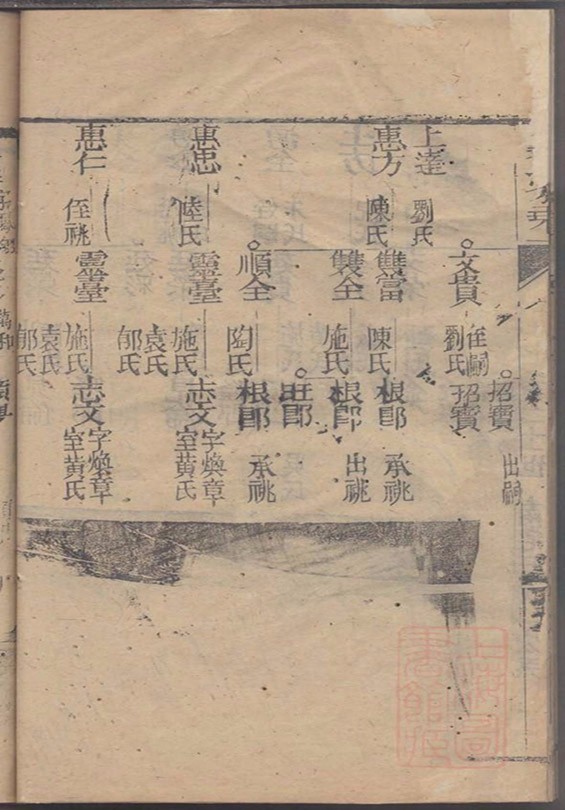 上達
劉氏
惠方
陳氏
惠忠
陸氏
惠仁
侄祧
文貴
侄嗣
劉氏
雙當
陳氏
雙全
施氏
順全
陶氏
靈臺
施氏
袁氏
郁氏
靈臺
施氏
袁氏
郁氏
招寶
出嗣
招寶
根郎
承祧
根郎
出祧
旺郎
根郎
承祧
志文
字煥章
室黄氏
志文
字煥章
室黄氏